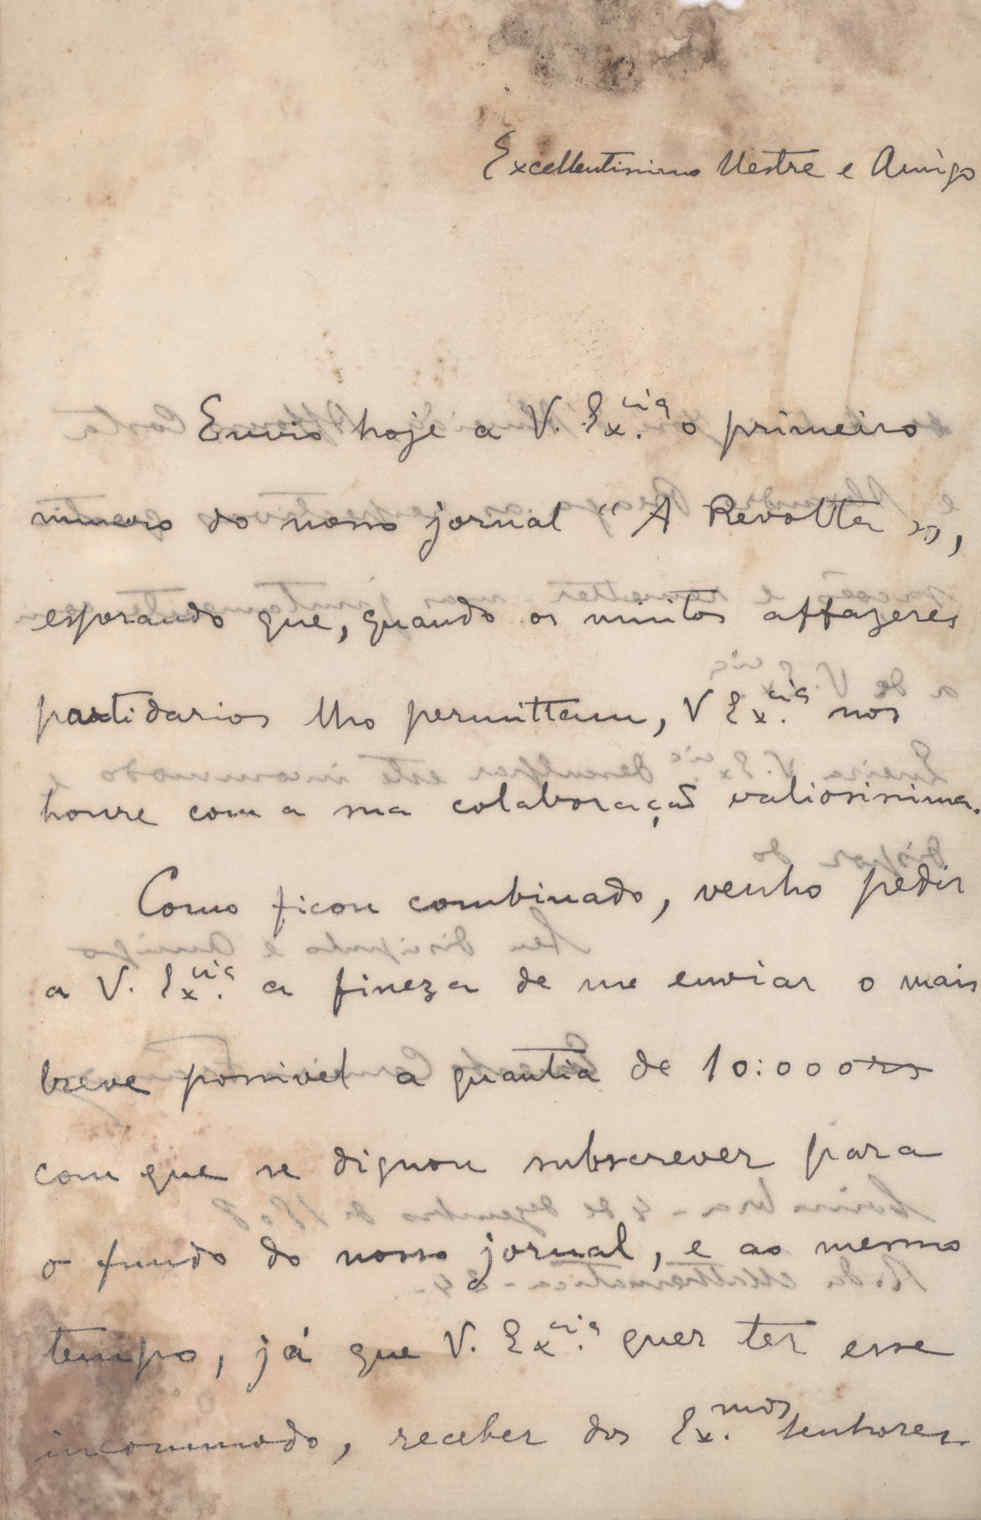 Excellentissimo Mestre e Amigo
Envio hoje a V. Ex.cia o primeiro
numero do nosso jornal "A Revolta",
esperando que, quando os muitos affazeres
partidarios lho permittam, V Ex.cia nos
honre com a sua colaboração valiosissima.
Como ficou combinado, venho pedir
a V. Ex.cia a fineza de me enviar o mais
breve possivel a quantia de 10:000rs
com que se dignou subscrever para
o fundo do nosso jornal, e ao mesmo
tempo, já que V. Ex.cia quer ter esse
incommodo, receber dos Ex.mos Senhores